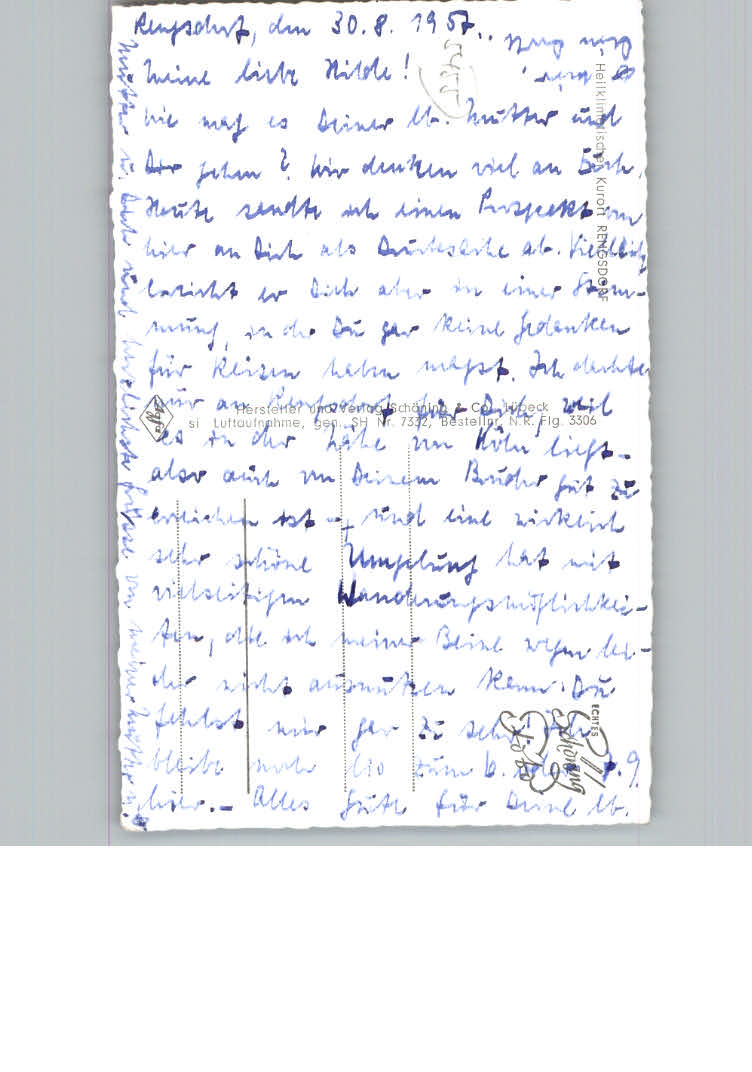 Rengsdorf, den 30.8.1957.
Meine liebe Hilde!
Wie mag es Deiner lb. Mutter und
Dir gehen? Wir denken viel an Euch.
Heute sandte ich einen Prospekt von
hier an Dich als Drucksache ab. Vielleicht
erreicht er Dich aber in einer Stim-
mung, in der Du gar keine Gedanken
für Reisen haben magst. Ich dachte
nur an Rengsdorf für Dich, weil
es in der Nähe von Köln liegt -
also auch von Deinem Bruder gut zu
erreichen ist - und eine wirklich
sehr schöne Umgebung hat mit
vielseitigen Wanderungsmöglichkei-
ten, die ich meiner Beine wegen lei-
der nicht ausnutzen kann. Du
fehlst mir gar zu sehr! Ich
bleibe noch bis zum 6. oder 7.9.
hier. - Alles Gute für Deine lb.
Mutter u. Dich und herzlichste Grüsse von meiner Mutter u.
Heilklimatischer Kurort RENGSDORF
Hersteller und Verlag Schöning & Co., Lübeck
si Luftaufnahme, gen. SH Nr. 7332, Bestellnr. N.R. Flg. 3306
Agfa
ECHTES
Schöning
Foto